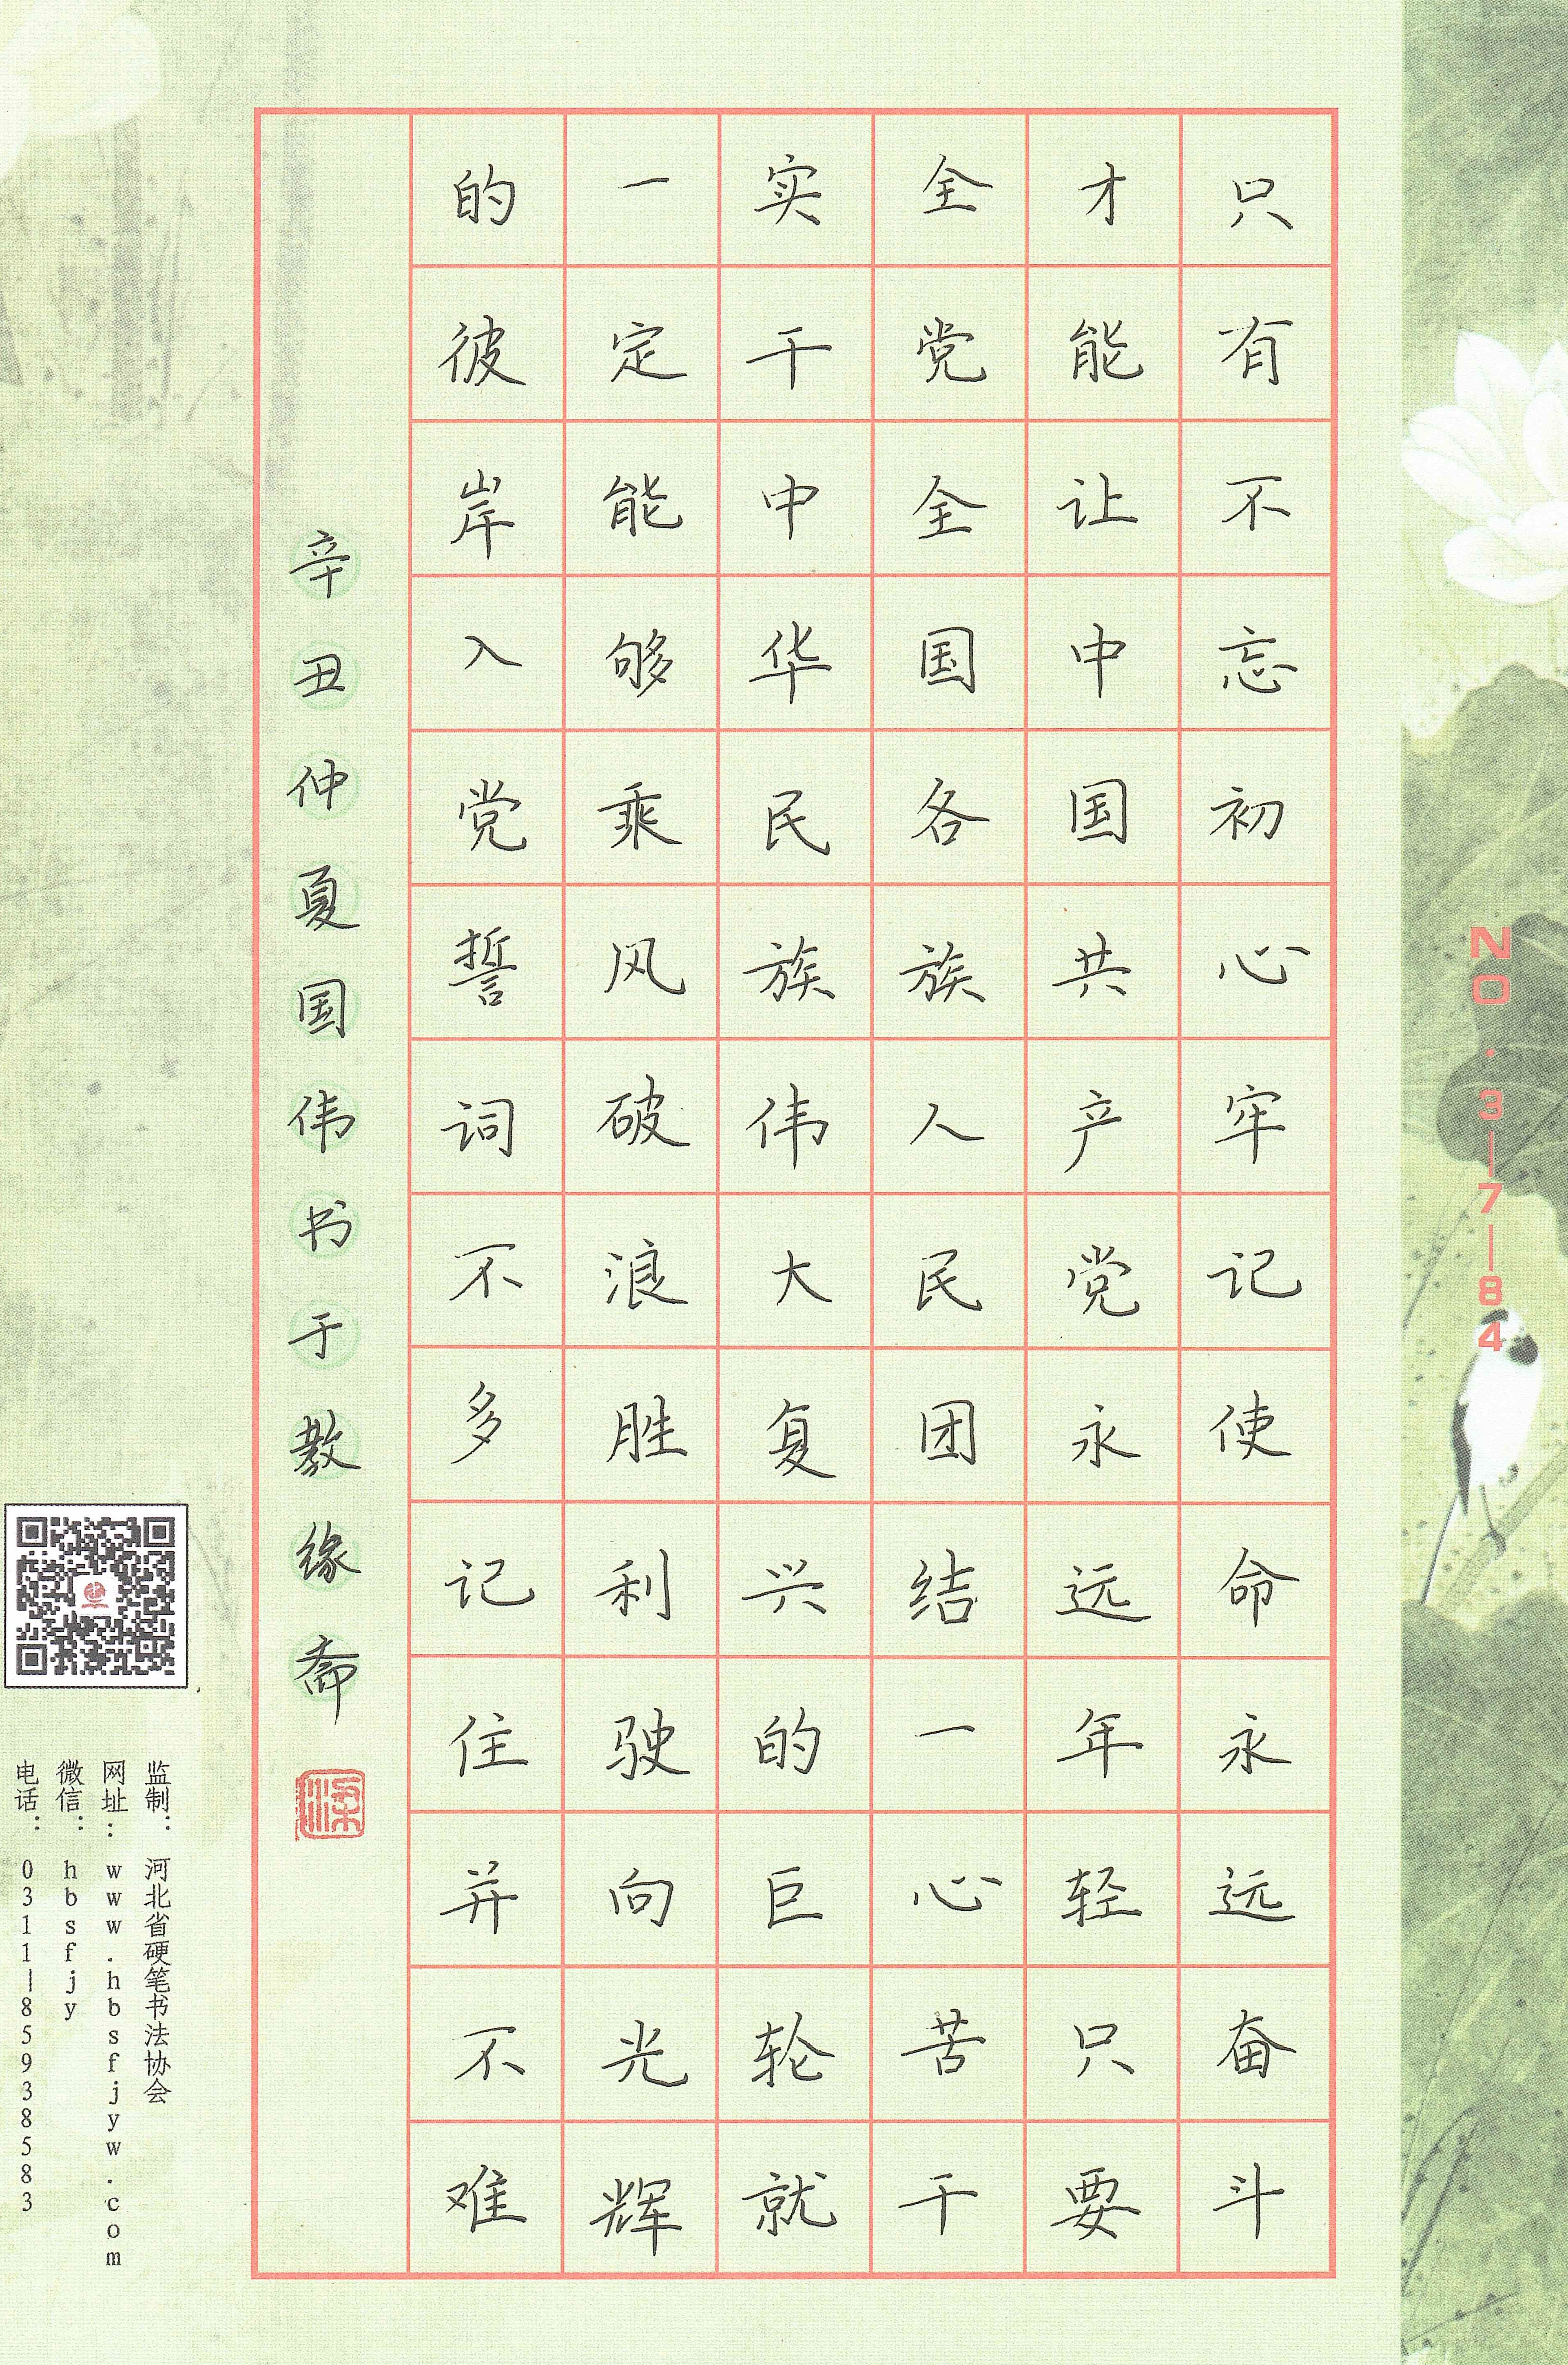 只有不忘初心牢记使命永远奋斗
才能让中国共产党永远年轻只要
全党全国各族人民团结一心苦干
实干中华民族伟大复兴的巨轮就
一定能够乘风破浪胜利驶向光辉
的彼岸入党誓词不多记住并不难
辛丑仲夏国伟书于教缘斋
NO.3—7—84
监制：河北省硬笔书法协会
网址：www.hbsfjyw.com
微信：hbsfjy
电话：0311—85938583